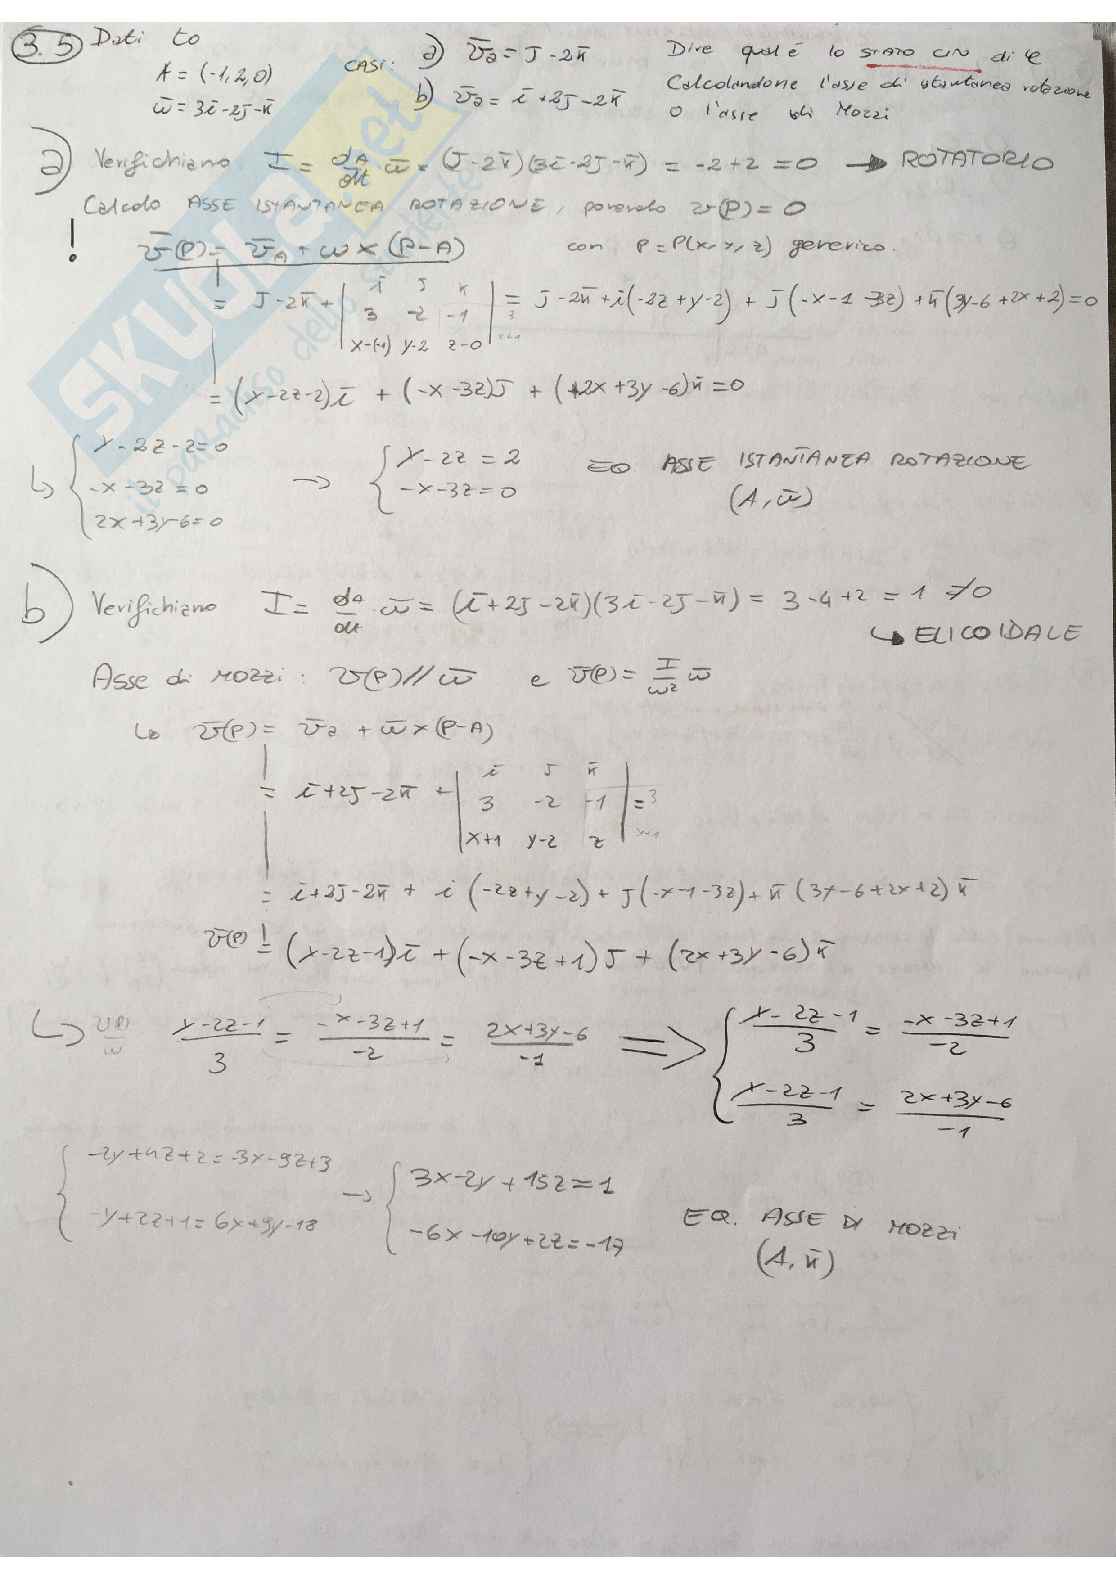 3.5 Dati to
A = (-1,2,0)
ω̄ = 3ī-2j-k̄
CASI: a) v̄a = j-2k̄
b) v̄a = ī+2j-2k̄
Dire qual é lo STATO CIN di
Calcolandone l'asse di istantanea rotazione
o l'asse di Mozzi
a) Verifichiamo I = dA/dt · ω̄ = (j-2k̄)(3ī-2j-k̄) = -2+2 = 0 → ROTATORIO
Calcolo ASSE ISTANTANEA ROTAZIONE, ponendo v(P) = 0
! v̄(P) = v̄A + ω × (P-A) con P = P(x, y, z) generico.
= j-2k̄ + | ī j k̄ | 3 -2 -1 | x-(-1) y-2 z-0 | = j-2k̄+ī(-2z+y-2) + j(-x-1-3z) + k̄(3y-6+2x+2)=0
= (y-2z-2)ī + (-x-3z)j + (+2x+3y-6)k̄ = 0
↳ { y-2z-2=0 → { y-2z = 2 EQ ASSE ISTANTANEA ROTAZIONE
-x-3z = 0 -x-3z = 0 (A, ω̄)
2x+3y-6=0
b) Verifichiamo I = da/dt · ω̄ = (ī+2j-2k̄)(3ī-2j-k̄) = 3-4+2 = 1 ≠0
↳ ELICOIDALE
Asse di MOZZI: v(P)//ω̄ e v̄(P) = I/ω² ω̄
↳ v̄(P) = v̄a + ω̄×(P-A)
= ī+2j-2k̄ + | ī j k̄ | 3 -2 -1 | x+1 y-2 z | =
= ī+2j-2k̄ + i(-2z+y-2) + j(-x-1-3z) + k̄(3y-6+2x+2)k̄
v̄(P) = (y-2z-1)ī + (-x-3z+1)j + (2x+3y-6)k̄
↳ v(P)/ω (y-2z-1)/3 = (-x-3z+1)/-2 = (2x+3y-6)/-1 ⇒ { (y-2z-1)/3 = (-x-3z+1)/-2
(y-2z-1)/3 = (2x+3y-6)/-1
{ -2y+4z+2=-3x-9z+3 → { 3x-2y+15z=1
-y+2z+1=6x+9y-18 -6x-10y+2z=-17 EQ. ASSE DI MOZZI
(A, k̄)
SKUOLA.net
il paradiso dello studente